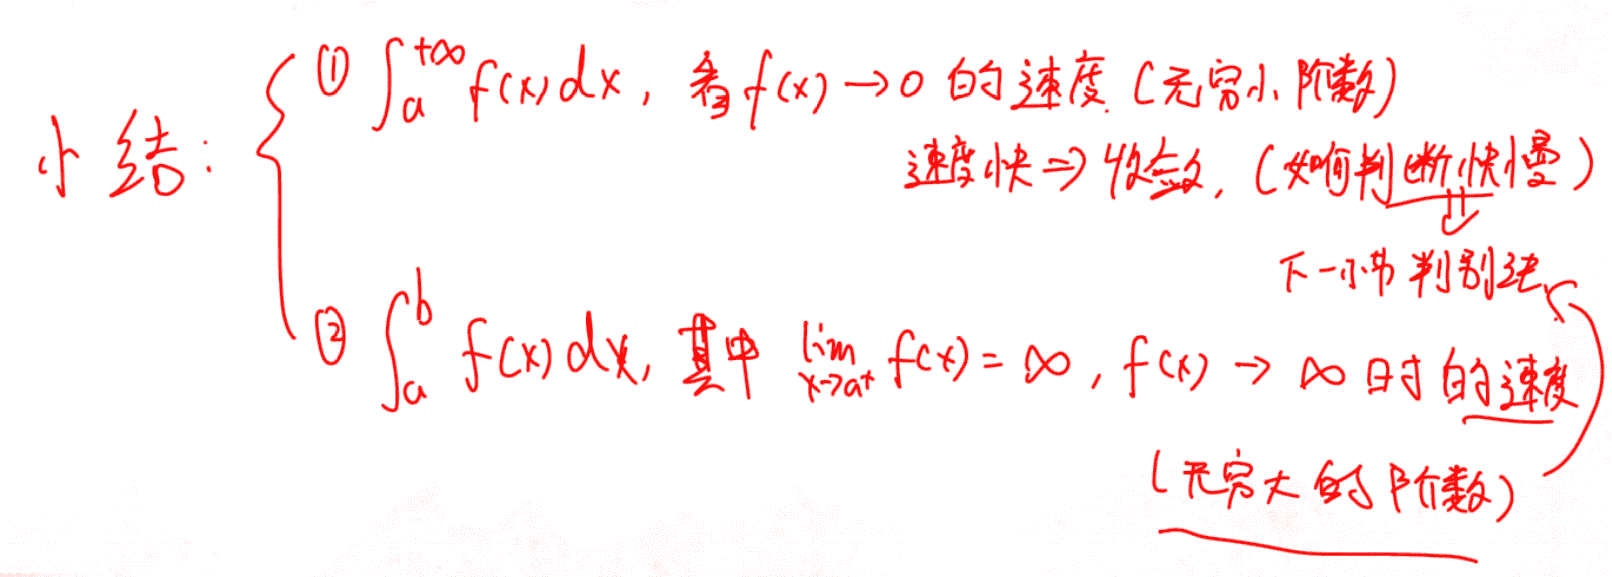 小结:
① ∫_a^{+∞} f(x)dx, 看 f(x)→0 的速度 (无穷小阶数)
速度快⇒收敛, (如何判断快慢)
⇓
下一小节判别法
② ∫_a^b f(x)dx, 其中 lim_{x→a⁺} f(x)=∞, f(x)→∞时的速度
(无穷大的阶数)